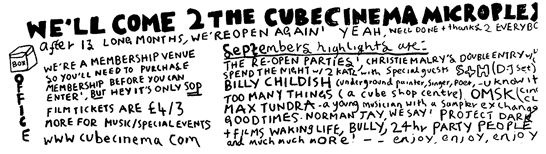 WE'LL COME 2 THE CUBE CINEMA MICROPLEX
after 13 LONG MONTHS, WE'RE OPEN AGAIN! YEAH, WELL DONE + thanks 2 EVERYBO
BOX
OFFICE
WE'RE A MEMBERSHIP VENUE
SO YOU'LL NEED TO PURCHASE
MEMBERSHIP BEFORE YOU CAN
ENTER', BUT HEY IT'S ONLY 50P
FILM TICKETS ARE £4/3
MORE FOR MUSIC/SPECIAL EVENTS
www.cubecinema.com
Septembers highlights are:
THE RE-OPEN PARTIES! CHRISTIE MALRY'S DOUBLE ENTRY w/
SPEND THE NIGHT w/ 2 KEV with special guests S+H (DJ set)
BILLY CHILDISH (underground painter, singer, Poet, - u know it
TOO MANY THINGS (a cube shop centre) OMSK
MAX TUNDRA - a young musician with a sampler exchange
GOODTIMES. NORMAN JAY, WE SAY! PROJECT DARK
+ FILMS WAKING LIFE, BULLY, 24hr PARTY PEOPLE
and much much more! -- enjoy, enjoy, enjoy